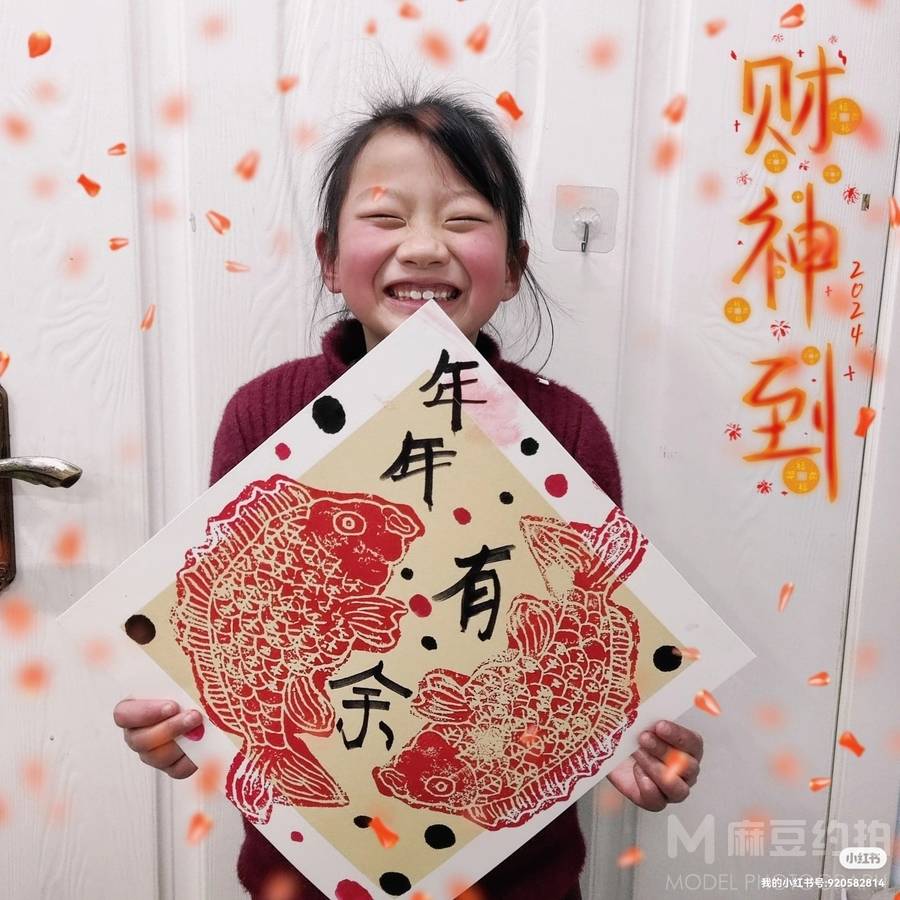 财神到
2024
年年有余
M 麻豆约拍
MODEL PHOTOGRAPH
小红书
我的小红书号:920582814